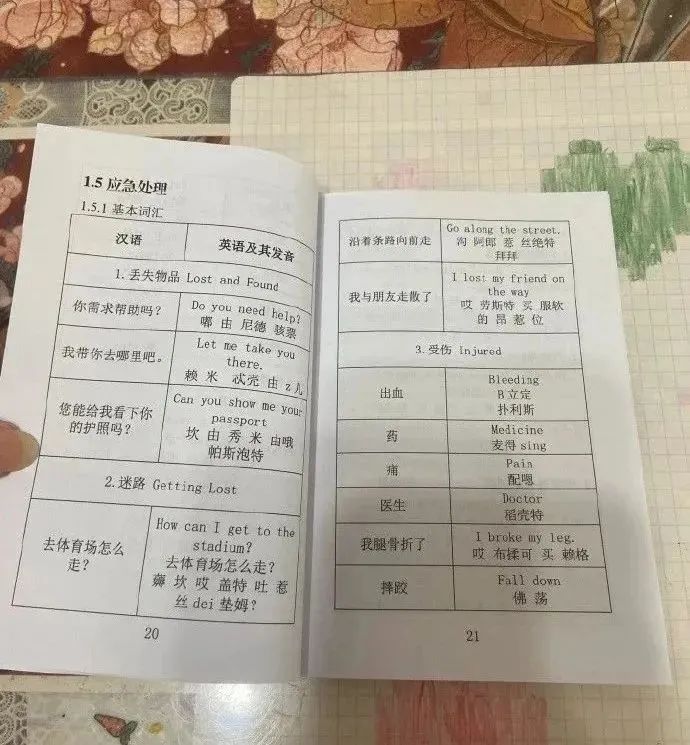 1.5 应急处理
1.5.1 基本词汇
汉语 英语及其发音
1. 丢失物品 Lost and Found
你需求帮助吗? Do you need help?
嘟 由 尼德 骇票
我带你去哪里吧。 Let me take you
there.
赖 米 忒壳 由 z儿
您能给我看下你
的护照吗? Can you show me your
passport
坎 由 秀 米 由哦
帕斯泡特
2.迷路 Getting Lost
去体育场怎么
走? How can I get to the
stadium?
去体育场怎么走?
薅 坎 哎 盖特 吐 惹
丝 dei 垫姆?
20
沿着条路向前走 Go along the street.
沟 阿郎 惹 丝绝特
拜拜
我与朋友走散了 I lost my friend on
the way
哎 劳斯特 买 服软
的 昂 惹 位
3.受伤 Injured
出血 Bleeding
B立定
扑利斯
药 Medicine
麦得 sing
痛 Pain
配嗯
医生 Doctor
稻壳特
我腿骨折了 I broke my leg.
哎 布揉可 买 赖格
摔跤 Fall down
佛 荡
21